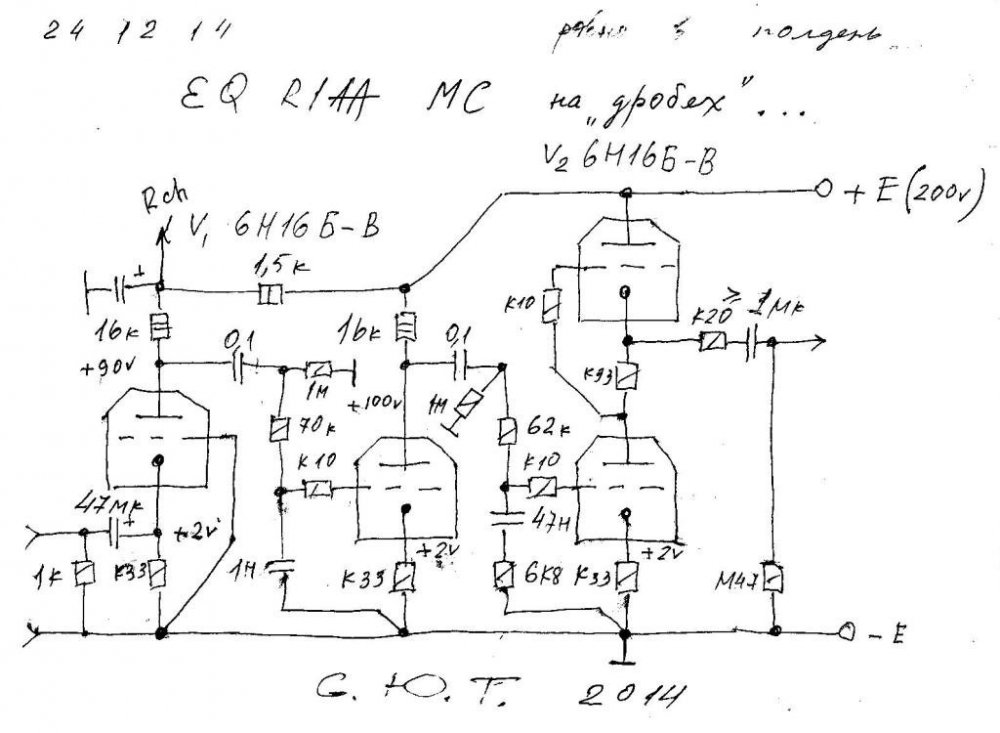 24 12 14
в полдень...
EQ RIAA MC на „дробех"...
V2 6Н16Б-В
+ E (200v)
Rch
V1 6Н16Б-В
+
1,5к
К10
К20
≥ 1мк
16к
0,1
16к
0,1
+90v
1м
+100v
1м
К33
70к
62к
К10
К10
47мк
+
+2v
47н
+2v
+2v
1к
К33
1н
К33
6К8
К33
М47
- E
С. Ю. Т. 2014